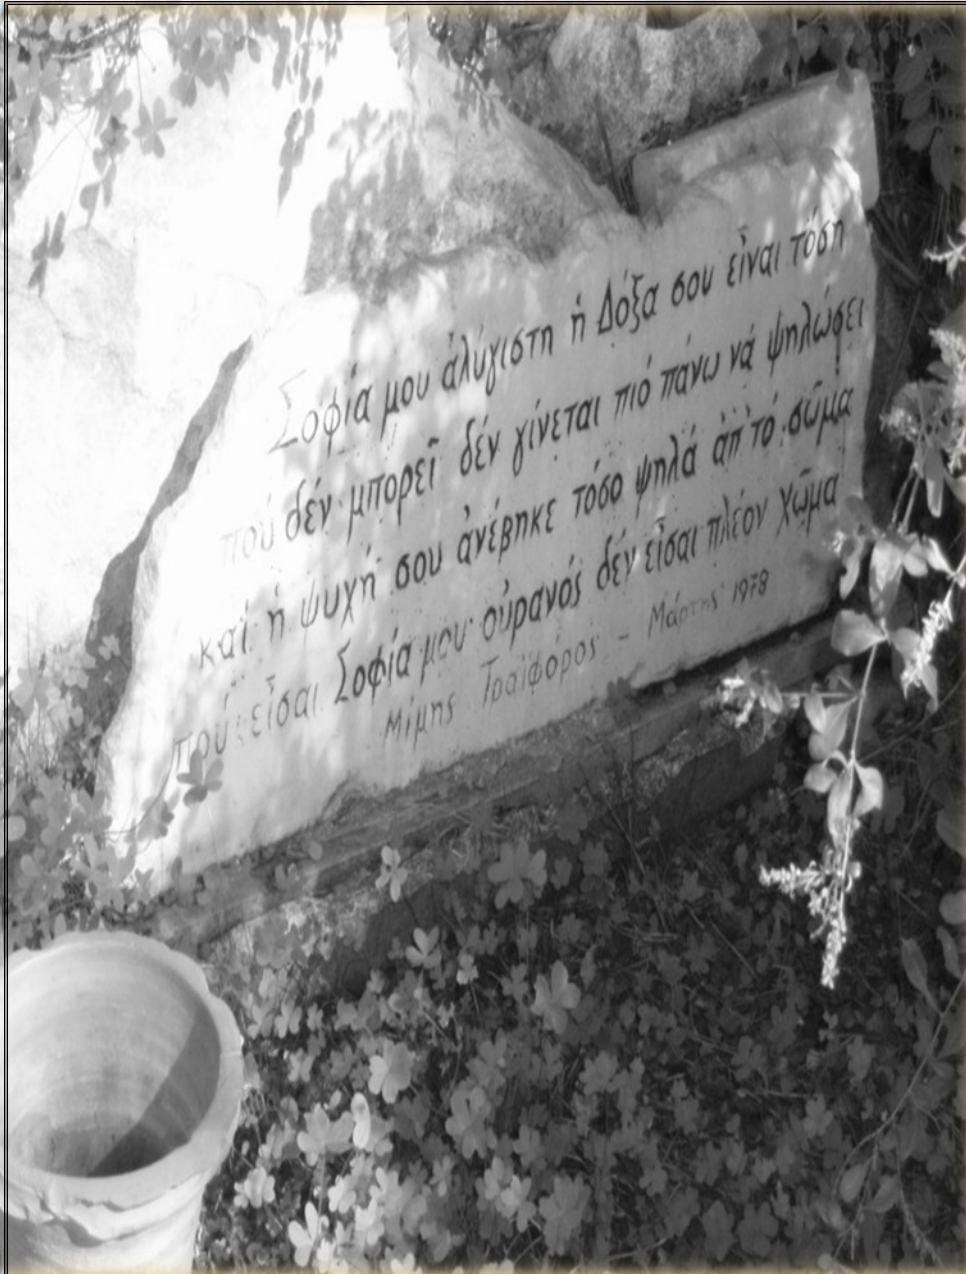 Σοφία μου ἀλύγιστη ἡ Δόξα σου εἶναι τόση
πού δέν μπορεῖ δέν γίνεται πιό πάνω νά ψηλώσει
καί ἡ ψυχή σου ἀνέβηκε τόσο ψηλά ἀπ' τό σῶμα
πού εἶσαι Σοφία μου οὐρανός δέν εἶσαι πλέον χῶμα
Μίμης Τραϊφόρος - Μάρτης 1978